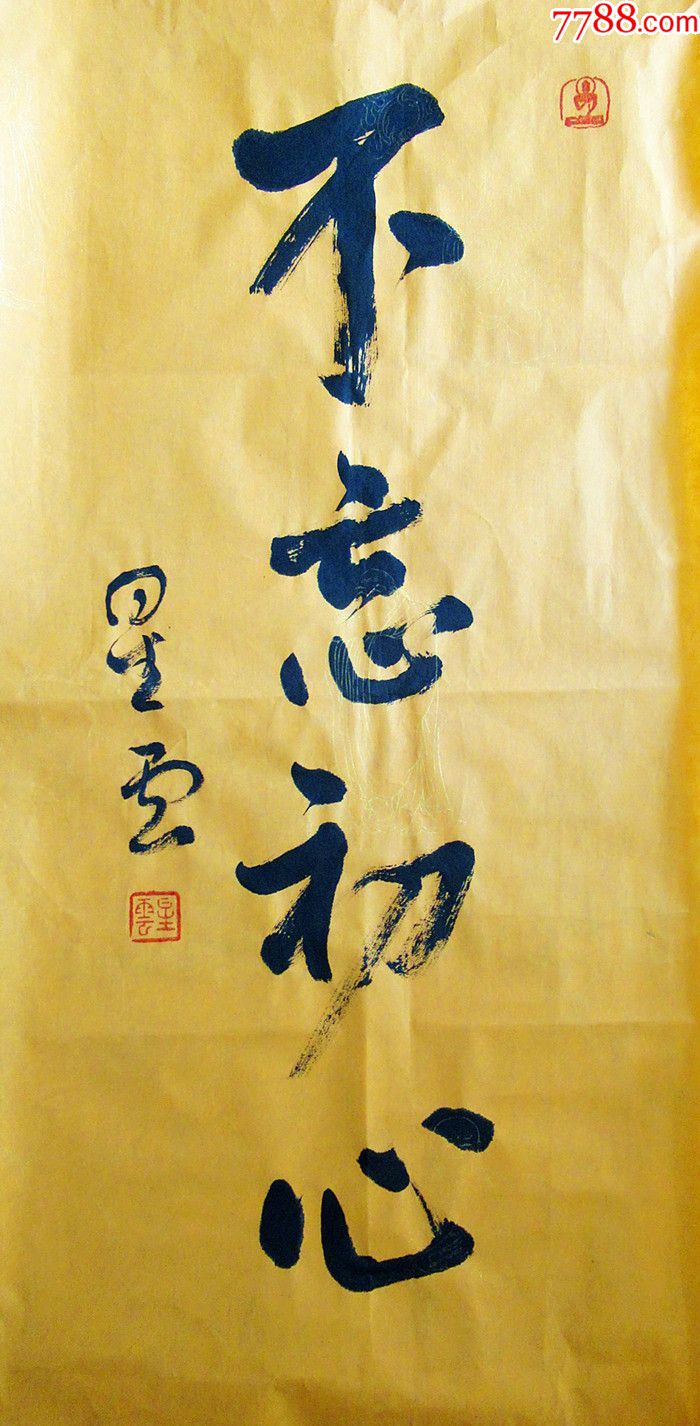 7788.com
不忘初心
星云
星雲